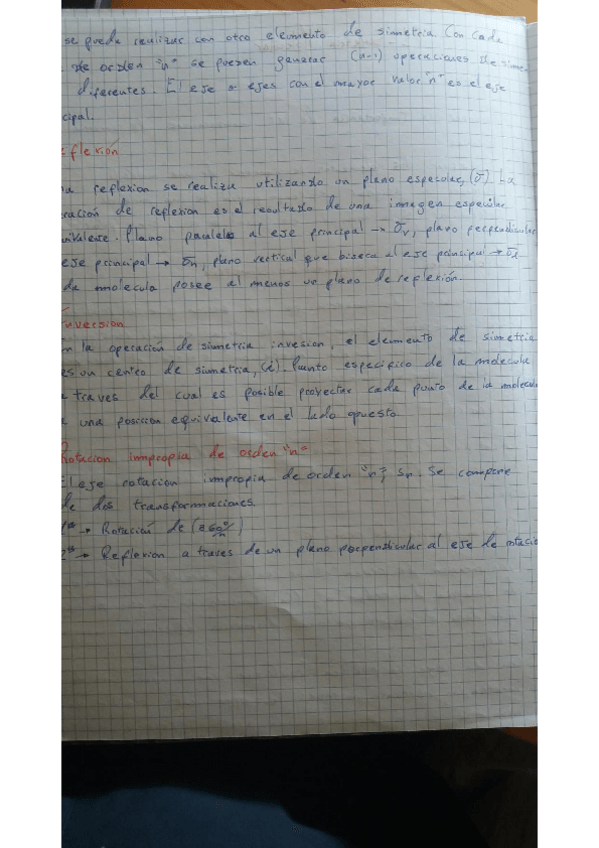 se puede realizar con otro elemento de simetria. Con cada
de orden "n" se pueden generar (n-1) operaciones de sime
diferentes. El eje o ejes con el mayor valor "n" es el eje
cipal.
eflexión
a reflexion se realiza utilizando un plano especular, (σ) La
ración de reflexion es el resultado de una imagen especular
uivalente. Plano paralelo al eje principal → σv, plano perpendicular
eje principal → σh, plano vertical que biseca al eje principal → σd
da molecula posee al menos un plano de reflexión.
nversion
n la operación de simetria invesion, el elemento de simetria
es un centro de simetria, (i). Punto especifico de la molecula
a traves del cual es posible proyectar cada punto de la molecul
a una posicion equivalente en el lado opuesto
Rotacion impropia de orden "n"
El eje rotacion impropia de orden "n", Sn. Se compone
de dos transformaciones.
1º → Rotación de (360/n)
2º → Reflexion a traves de un plano perpendicular al eje de rotacio